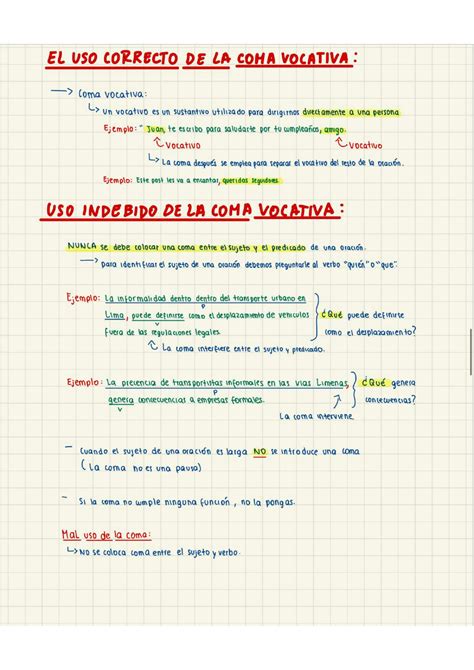 EL USO CORRECTO DE LA COMA VOCATIVA:
→ Coma vocativa:
↳ Un vocativo es un sustantivo utilizado para dirigirnos directamente a una persona
Ejemplo: " Juan, te escribo para saludarte por tu cumpleaños, amigo.
↳ Vocativo ↳ Vocativo
↳ La coma después se emplea para separar el vocativo del resto de la oración.
Ejemplo: Este post les va a encantar, queridos seguidores
USO INDEBIDO DE LA COMA VOCATIVA:
NUNCA se debe colocar una coma entre el sujeto y el predicado de una oración.
→ para identificar el sujeto de una oración debemos preguntarle al verbo "quién" o "que".
Ejemplo: La informalidad dentro dentro del transporte urbano en
Lima, puede definirse como el desplazamiento de vehiculos
fuera de las regulaciones legales.
P
V
¿Qué puede definirse
como el desplazamiento?
↳ La coma interfiere entre el sujeto y predicado.
Ejemplo: La precencia de transportistas informales en las vias Limenas,
genera consecuencias a empresas formales.
P
V
¿Qué genera
consecuencias?
La coma interviene
- Cuando el sujeto de una oración es larga NO se introduce una coma
( La coma no es una pausa)
- Si la coma no cumple ninguna función, no la pongas.
Mal uso de la coma:
↳ No se coloca coma entre el sujeto y verbo.